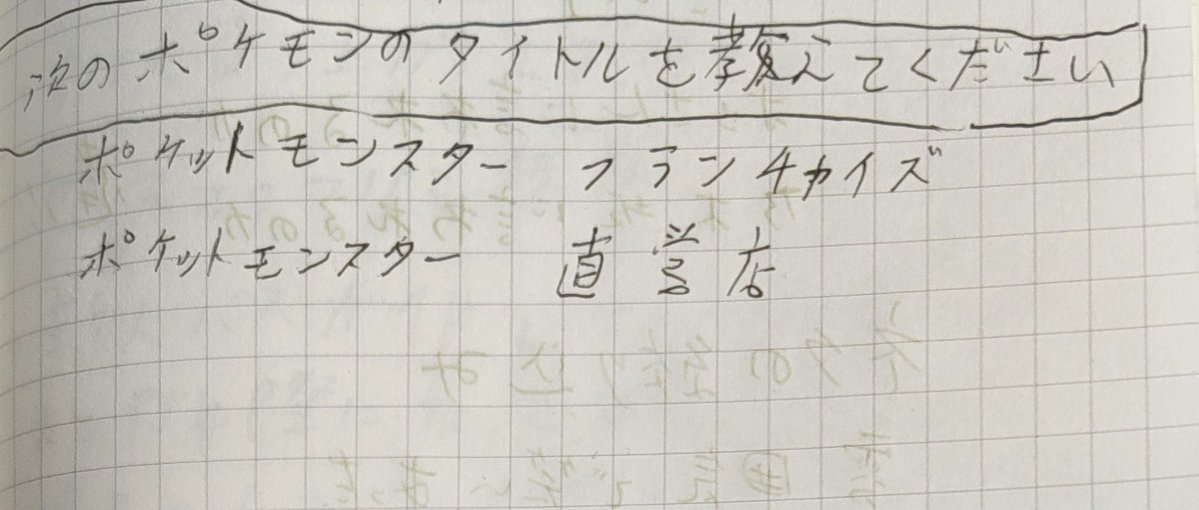 次のポケモンのタイトルを教えてください
ポケットモンスター フランチャイズ
ポケットモンスター 直営店